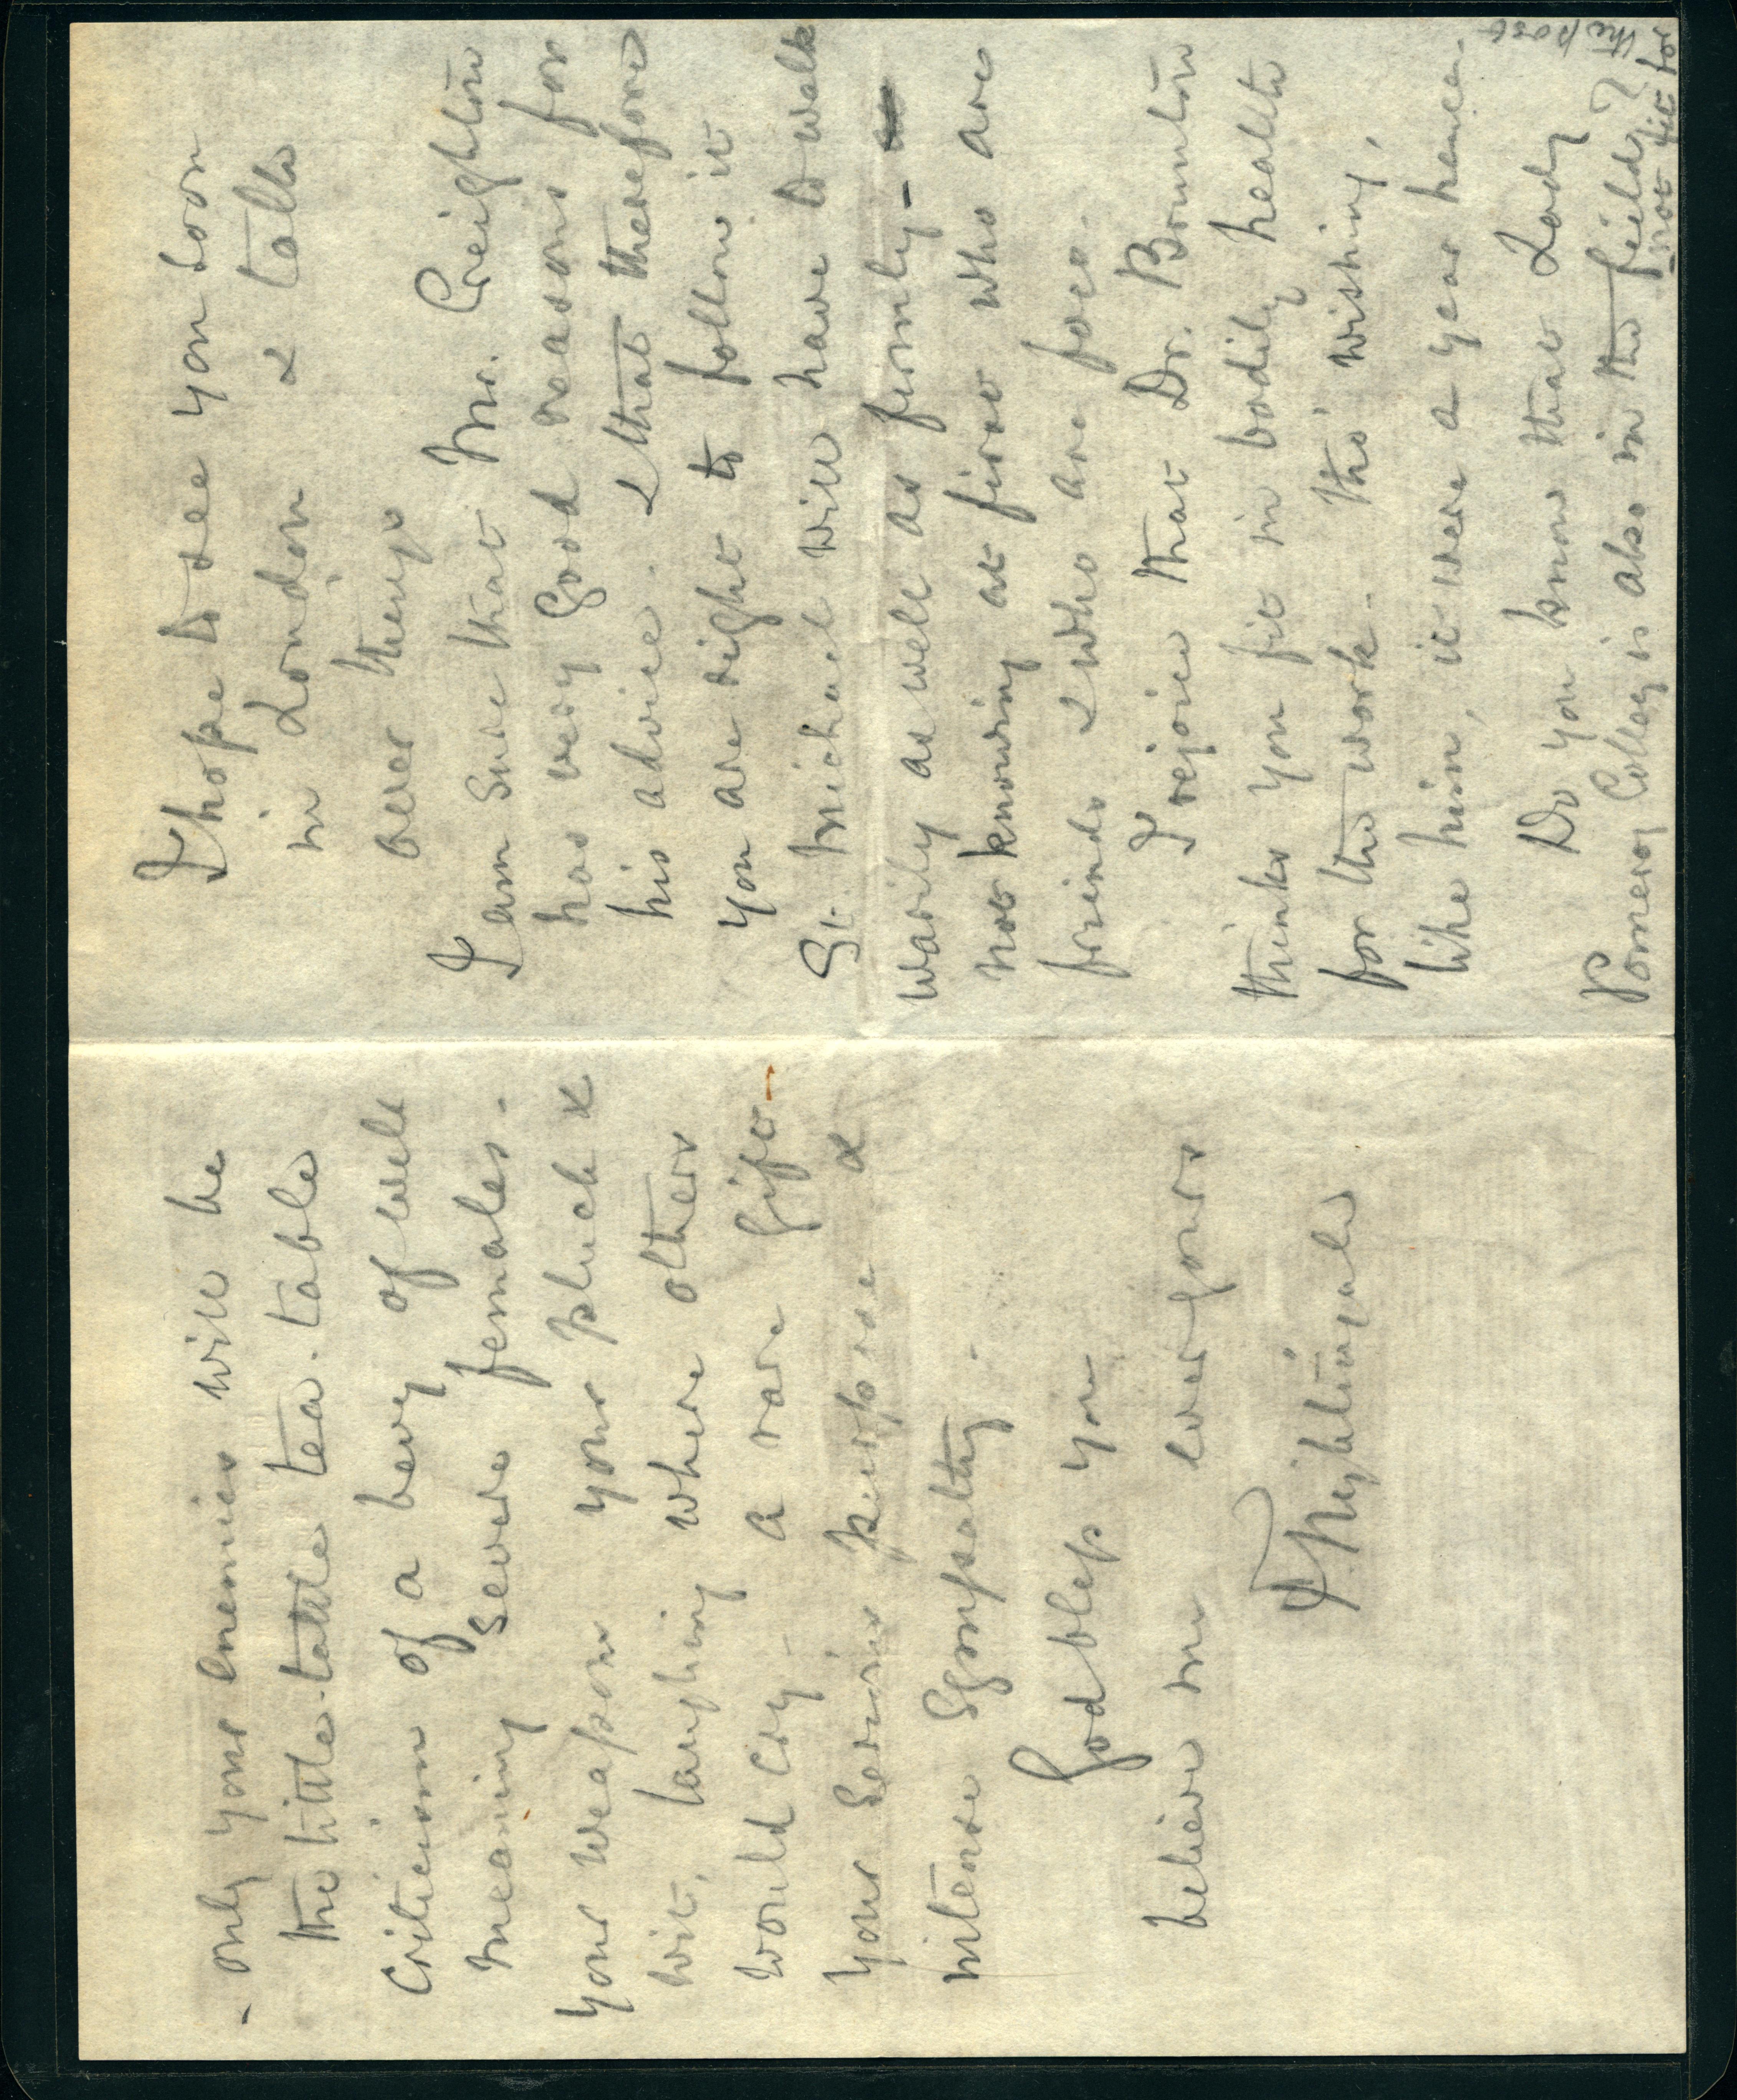 - only your enemies will be
the tittle-tattle tea-table
criticism of a bevy of well
meaning severe females -
your weapon your pluck &
wit, laughing where others
would cry - a rare gift -
your serious purpose &
intense sympathy -
God bless you
believe me ever yours
F Nightingale
I hope to see you soon
in London & talk
over things
I am sure that Mr. Creighton
has very good reasons for
his advice. & that therefore
you are right to follow it
St. Michael will have to walk
warily as well as firmly -
not knowing at first who are
friends & who are foes.
I rejoice that Dr. Brunton
thinks you fit in bodily health
for the work - tho' wishing,
like him, it were a year hence.
Do you know that Lady
Pomeroy Colley is also in the field?
- not fit for
the post